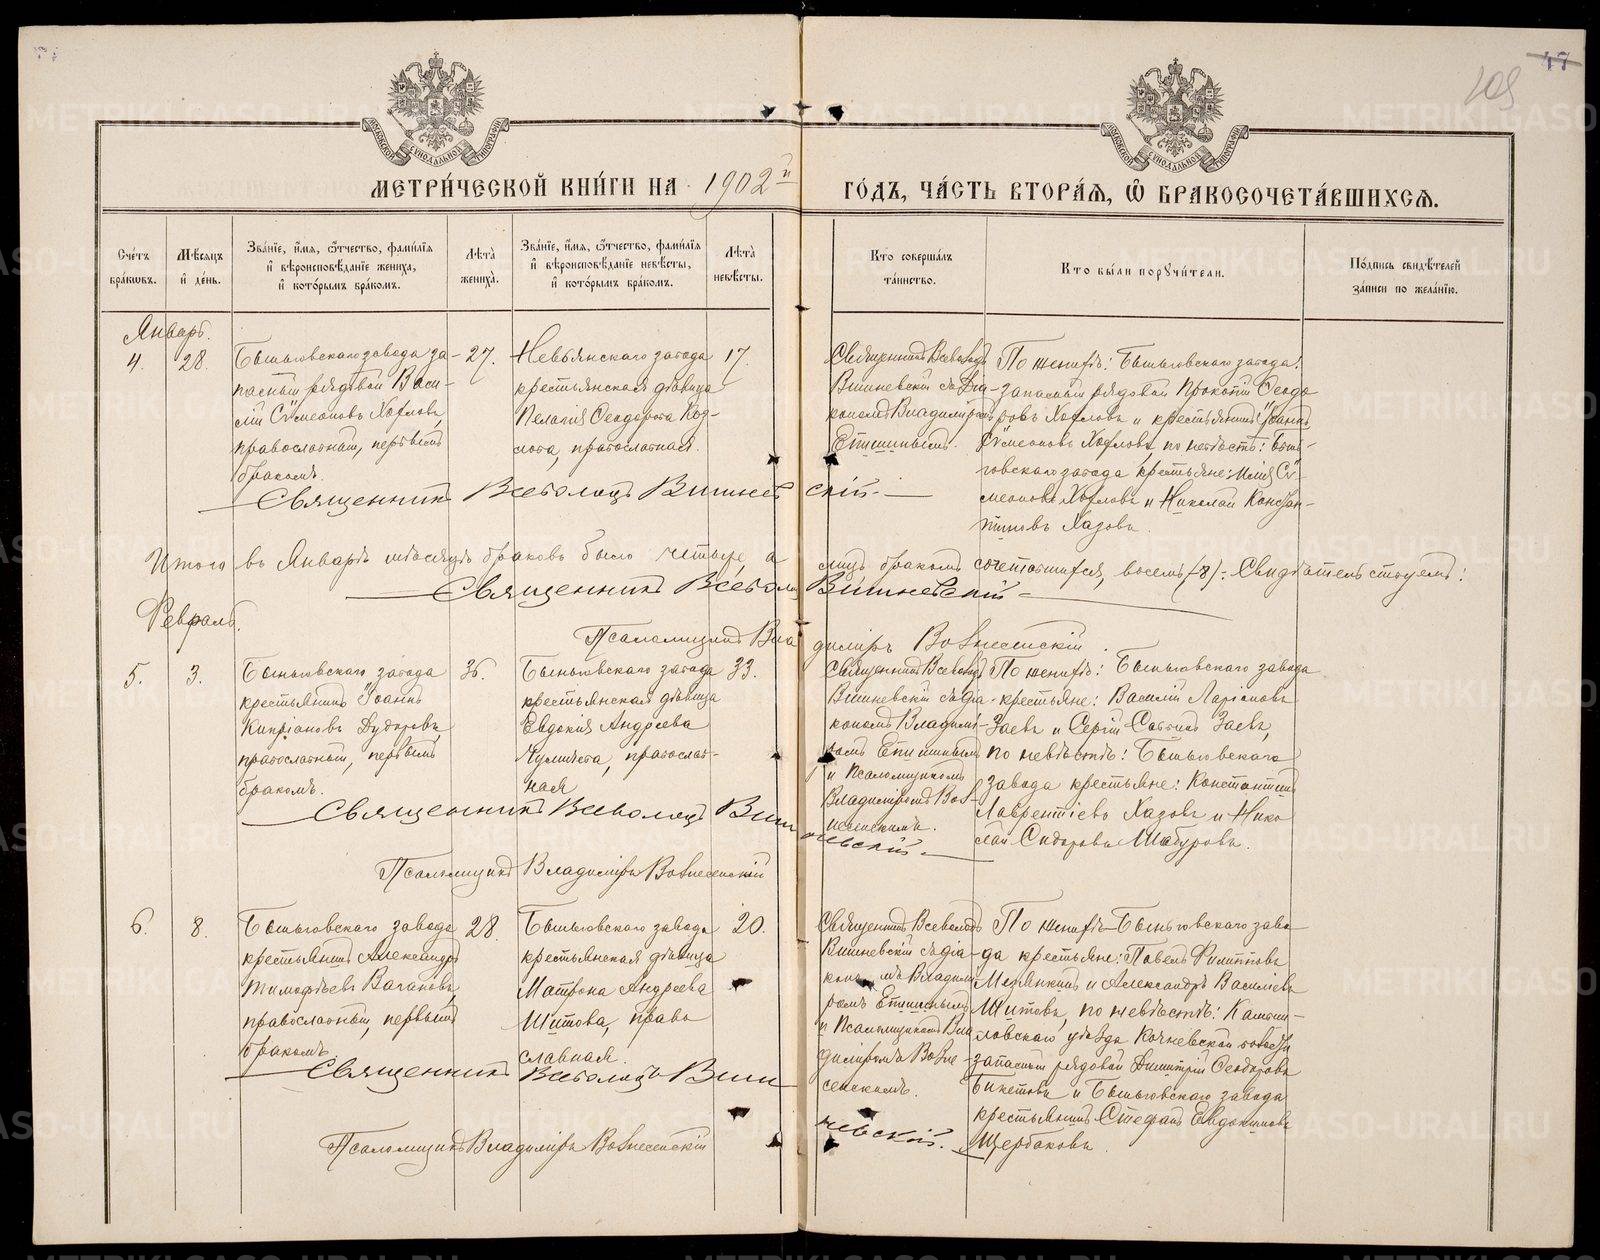 47
109
МЕТРИ́ЧЕСКОЙ КНИ́ГИ НА 1902й ГО́ДЪ, ЧА́СТЬ ВТОРА́Я, Ѡ БРАКОСОЧЕТА́ВШИХСЯ.
Сче́тъ бра́кѡвъ.
Мѣ́сяцъ и҆ де́нь.
Зва́нїе, и҆́мя, ѻ҆́тчество, фами́лїя и҆ вѣроисповѣ́данїе жениха̀, и҆ кото́рымъ бра́комъ.
Лѣ́та жениха̀.
Зва́нїе, и҆́мя, ѻ҆́тчество, фами́лїя и҆ вѣроисповѣ́данїе невѣ́сты, и҆ кото́рымъ бра́комъ.
Лѣ́та невѣ́сты.
Кто̀ соверша́лъ та́инство.
Кто̀ бы́ли поручи́тели.
По́дпись свидѣ́телей за́писи по жела́нїю.
Январь.
4.
28.
Быньговскаго завода за-
пасный рядовой Васи-
лій Сѵмеоновъ Хохловъ,
православный, первымъ
бракомъ.
27.
Невьянскаго завода
крестьянская дѣвица
Пелагія Ѳеодорова
православная.
17.
Священникъ Всеволодъ
Вишневскій съ діа-
кономъ Владиміромъ
Епишинымъ.
По женихѣ: Быньговскаго завода:
запасный рядовой Прокопій Ѳеодо-
ровъ Хохловъ и крестьянинъ Іоаннъ
Сѵмеоновъ Хохловъ, по невѣстѣ: Бынь-
говскаго завода крестьяне: Илія Сѵ-
меоновъ Хохловъ и Николай Констан-
тиновъ Хазовъ.
Священникъ Всеволодъ Вишневскій.
Итого въ Январѣ мѣсяцѣ браковъ было четыре, а лицъ бракомъ сочетавшихся, восемь (8). Свидѣтельствуемъ:
Священникъ Всеволодъ Вишневскій
Псаломщикъ Владиміръ Вознесенскій.
Февраль.
5.
3.
Быньговскаго завода
крестьянинъ Іоаннъ
Кипріановъ Дударевъ,
православный, первымъ
бракомъ.
36.
Быньговскаго завода
крестьянская дѣвица
Евдокія Андреева
православ-
ная
33.
Священникъ Всеволодъ
Вишневскій съ діа-
кономъ Владимі-
ромъ Епишинымъ
и Псаломщикомъ
Владиміромъ Воз-
несенскимъ.
По женихѣ: Быньговскаго завода
крестьяне: Василій Ларіоновъ
Заевъ и Сергій Саввинъ Заевъ,
по невѣстѣ: Быньговскаго
завода крестьяне: Константинъ
Лаврентіевъ Хазовъ и Нико-
лай Сидоровъ Шабуровъ.
Священникъ Всеволодъ Вишневскій
Псаломщикъ Владиміръ Вознесенскій
6.
8.
Быньговскаго завода
крестьянинъ Александръ
Тимофѣевъ Вагановъ,
православный, первымъ
бракомъ.
28.
Быньговскаго завода
крестьянская дѣвица
Матрона Андреева
Шитова, право
славная.
20.
Священникъ Всеволодъ
Вишневскій съ діа-
кономъ Владимі-
ромъ Епишинымъ
и Псаломщикомъ Вла
диміромъ Возне-
сенскимъ.
По женихѣ Быньговскаго заво-
да крестьяне: Павелъ Филипповъ
Мерянкинъ и Александръ Василіевъ
Шитовъ, по невѣстѣ: Камыш-
ловскаго уѣзда Кочневской волости
запасный рядовой Димитрій Ѳеодоровъ
Бикетовъ и Быньговскаго завода
крестьянинъ Стефанъ Евдокимовъ
Щербаковъ.
Священникъ Всеволодъ Вишневскій.
Псаломщикъ Владиміръ Вознесенскій
METRIKI.GASO-URAL.RU